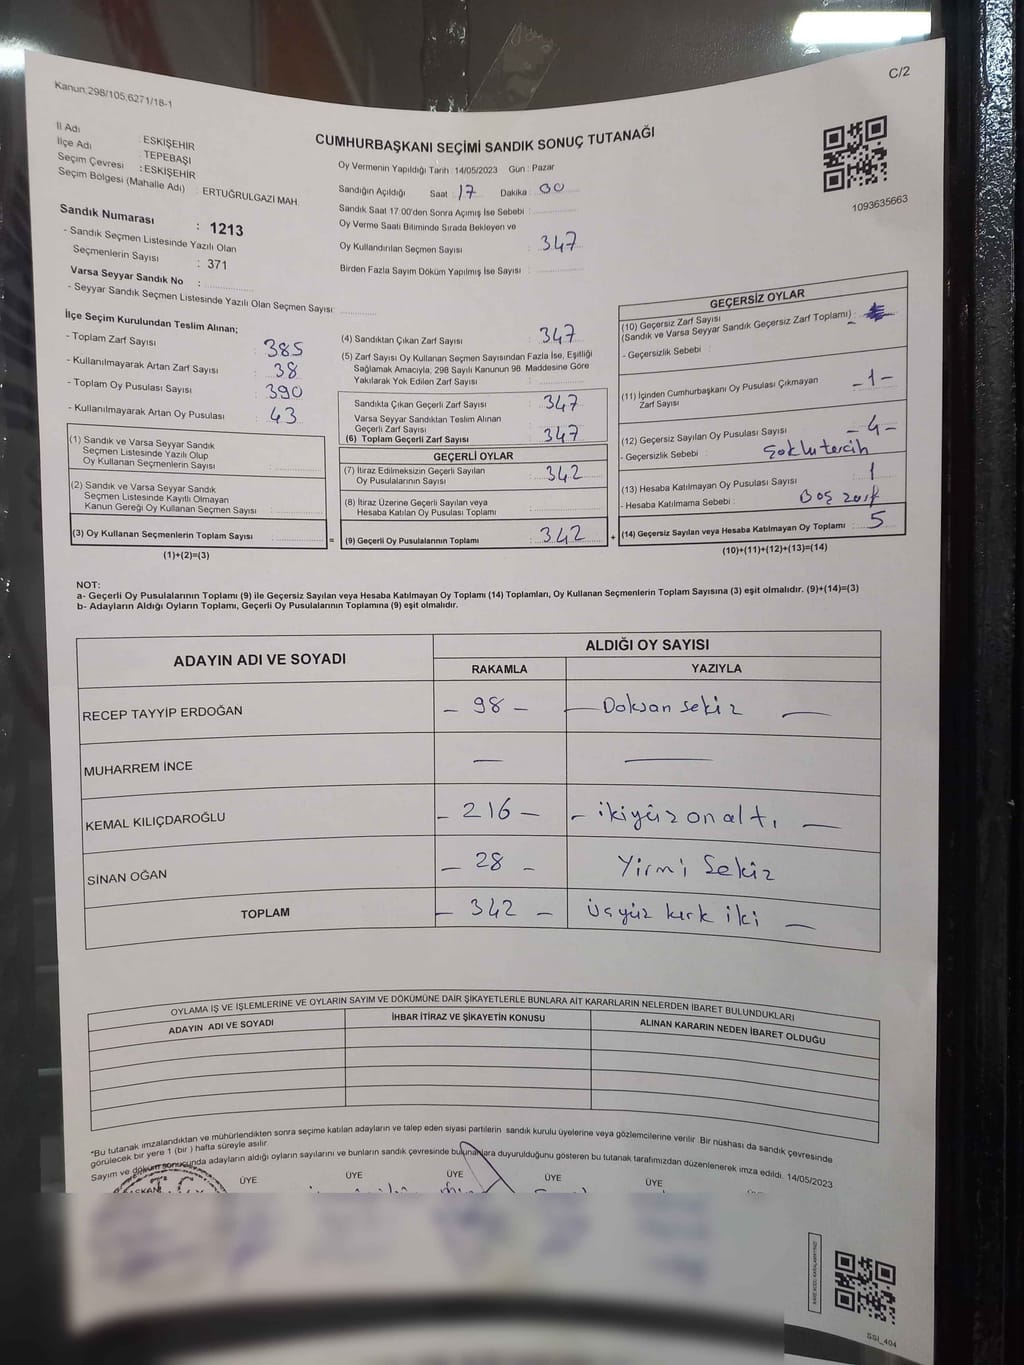 Kanun;298/105;6271/18-1
C/2
CUMHURBAŞKANI SEÇİMİ SANDIK SONUÇ TUTANAĞI
İl Adı : ESKİŞEHİR
İlçe Adı : TEPEBAŞI
Seçim Çevresi : ESKİŞEHİR
Seçim Bölgesi (Mahalle Adı) : ERTUĞRULGAZİ MAH.
Sandık Numarası : 1213
- Sandık Seçmen Listesinde Yazılı Olan
Seçmenlerin Sayısı : 371
Varsa Seyyar Sandık No :
- Seyyar Sandık Seçmen Listesinde Yazılı Olan Seçmen Sayısı:
Oy Vermenin Yapıldığı Tarih : 14/05/2023 Gün : Pazar
Sandığın Açıldığı Saat : 17 Dakika : 00
Sandık Saat 17.00'den Sonra Açımış İse Sebebi :
Oy Verme Saati Bitiminde Sırada Bekleyen ve
Oy Kullandırılan Seçmen Sayısı : 347
Birden Fazla Sayım Döküm Yapılmış İse Sayısı :
1093635663
İlçe Seçim Kurulundan Teslim Alınan;
- Toplam Zarf Sayısı : 385
- Kullanılmayarak Artan Zarf Sayısı : 38
- Toplam Oy Pusulası Sayısı : 390
- Kullanılmayarak Artan Oy Pusulası : 43
(1) Sandık ve Varsa Seyyar Sandık
Seçmen Listesinde Yazılı Olup
Oy Kullanan Seçmenlerin Sayısı :
(2) Sandık ve Varsa Seyyar Sandık
Seçmen Listesinde Kayıtlı Olmayan
Kanun Gereği Oy Kullanan Seçmen Sayısı :
(3) Oy Kullanan Seçmenlerin Toplam Sayısı : =
(1)+(2)=(3)
(4) Sandıktan Çıkan Zarf Sayısı : 347
(5) Zarf Sayısı Oy Kullanan Seçmen Sayısından Fazla İse, Eşitliği
Sağlamak Amacıyla, 298 Sayılı Kanunun 98. Maddesine Göre
Yakılarak Yok Edilen Zarf Sayısı :
Sandıkta Çıkan Geçerli Zarf Sayısı : 347
Varsa Seyyar Sandıktan Teslim Alınan
Geçerli Zarf Sayısı :
(6) Toplam Geçerli Zarf Sayısı : 347
GEÇERLİ OYLAR
(7) İtiraz Edilmeksizin Geçerli Sayılan
Oy Pusulasının Sayısı : 342
(8) İtiraz Üzerine Geçerli Sayılan veya
Hesaba Katılan Oy Pusulası Toplamı :
(9) Geçerli Oy Pusulalarının Toplamı : 342 +
GEÇERSİZ OYLAR
(10) Geçersiz Zarf Sayısı
(Sandık ve Varsa Seyyar Sandık Geçersiz Zarf Toplamı) :
- Geçersizlik Sebebi :
(11) İçinden Cumhurbaşkanı Oy Pusulası Çıkmayan
Zarf Sayısı : -1-
(12) Geçersiz Sayılan Oy Pusulası Sayısı : -4-
- Geçersizlik Sebebi : Çoklu tercih
(13) Hesaba Katılmayan Oy Pusulası Sayısı : 1
- Hesaba Katılmama Sebebi : Boş zarf
(14) Geçersiz Sayılan veya Hesaba Katılmayan Oy Toplamı : 5
(10)+(11)+(12)+(13)=(14)
NOT:
a- Geçerli Oy Pusulalarının Toplamı (9) ile Geçersiz Sayılan veya Hesaba Katılmayan Oy Toplamı (14) Toplamları, Oy Kullanan Seçmenlerin Toplam Sayısına (3) eşit olmalıdır. (9)+(14)=(3)
b- Adayların Aldığı Oyların Toplamı, Geçerli Oy Pusulalarının Toplamına (9) eşit olmalıdır.
ADAYIN ADI VE SOYADI
ALDIĞI OY SAYISI
RAKAMLA YAZIYLA
RECEP TAYYİP ERDOĞAN - 98 - — Doksan sekiz —
MUHARREM İNCE — —
KEMAL KILIÇDAROĞLU - 216 - - ikiyüz on altı —
SİNAN OĞAN - 28 - Yirmi Sekiz
TOPLAM - 342 - üçyüz kırk iki —
OYLAMA İŞ VE İŞLEMLERİNE VE OYLARIN SAYIM VE DÖKÜMÜNE DAİR ŞİKAYETLERLE BUNLARA AİT KARARLARIN NELERDEN İBARET BULUNDUKLARI
ADAYIN ADI VE SOYADI İHBAR İTİRAZ VE ŞİKAYETİN KONUSU ALINAN KARARIN NEDEN İBARET OLDUĞU
*Bu tutanak imzalandıktan ve mühürlendikten sonra seçime katılan adayların ve talep eden siyasi partilerin sandık kurulu üyelerine veya gözlemcilerine verilir. Bir nüshası da sandık çevresinde
görülecek bir yere 1 (bir ) hafta süreyle asılır.
Sayım ve döküm sonucunda adayların aldığı oyların sayılarını ve bunların sandık çevresinde bulunanlara duyurulduğunu gösteren bu tutanak tarafımızdan düzenlenerek imza edildi. 14/05/2023
BAŞKAN ÜYE ÜYE ÜYE ÜYE ÜYE ÜYE
T.C.
SSI_404